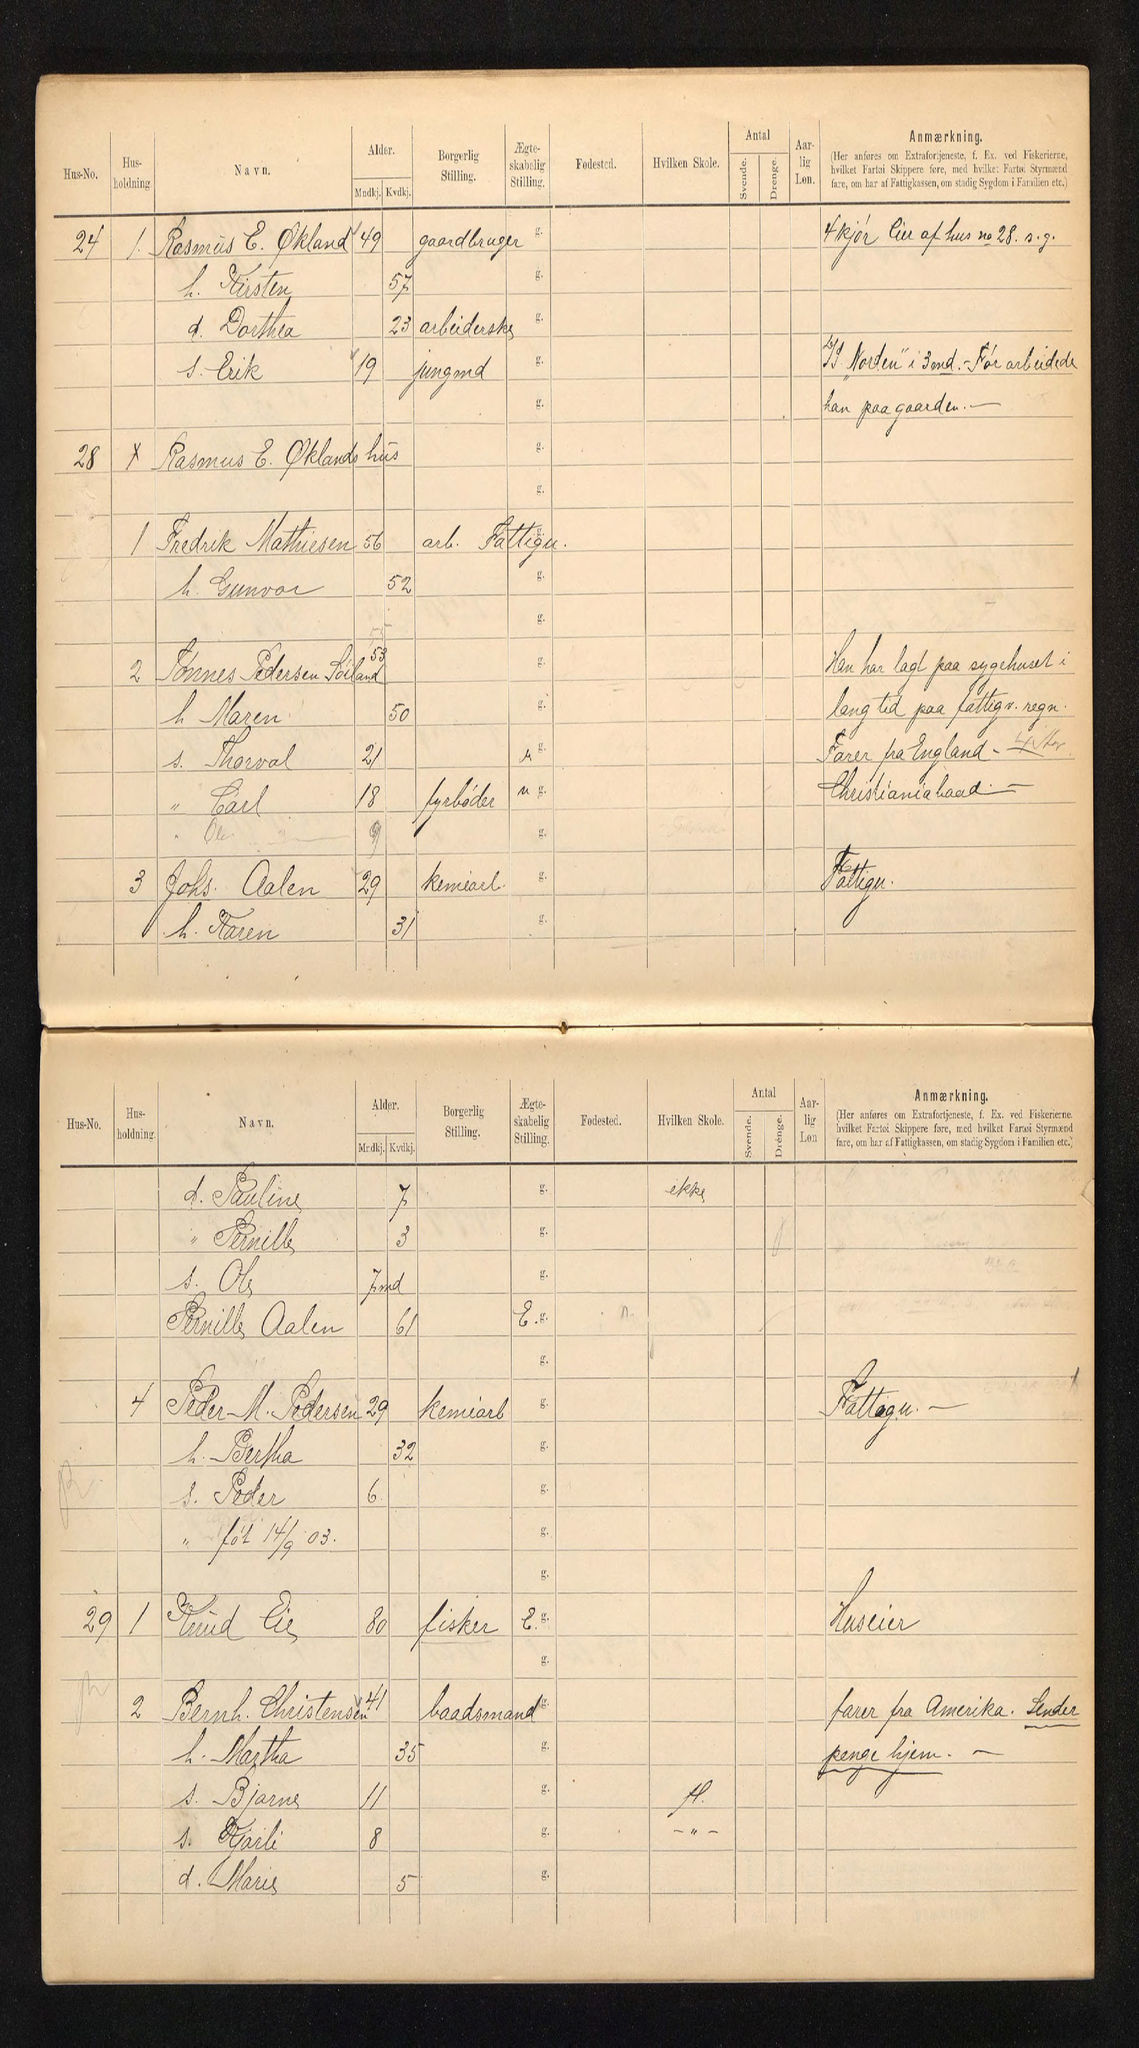 Hus-No. Hus-holdning. Navn. Alder. Mndkj. Kvdkj. Borgerlig Stilling. Ægte-skabelig Stilling. Fødested. Hvilken Skole. Antal Svende. Drenge. Aar-lig Løn. Anmærkning.
(Her anføres om Extrafortjeneste, f. Ex. ved Fiskerierne,
hvilket Fartøi Skippere føre, med hvilket Fartøi Styrmænd
fare, om har af Fattigkassen, om stadig Sygdom i Familien etc.)
24 1. Rasmus E. Økland 49 gaardbruger g. 4 kjør Eier af hus no 28. s.g.
h. Kirsten 57 g.
d. Dorthea 23 arbeiderske g.
s. Erik 19 jungmd g. D/S "Norden" i 3 md. - Før arbeidede
g. han paa gaarden. —
28 X Rasmus E. Øklands hus g.
g.
1 Fredrik Mathiesen 56 arb. Fattigv. g.
h. Gunvor 52 g.
g.
2 Tønnes Pedersen Soiland 53 g. Han har lagt paa sygehuset i
h Maren 50 g. lang tid paa fattigv. regn.
s. Thorval 21 u g. Farer fra England -
" Carl 18 fyrbøder u g. Christianiabaad. —
" Ole 9 g.
3 Johs. Aalen 29 kemiarb. g. Fattigv.
h. Karen 31 g.
Hus-No. Hus-holdning. Navn. Alder. Mndkj. Kvdkj. Borgerlig Stilling. Ægte-skabelig Stilling. Fødested. Hvilken Skole. Antal Svende. Drenge. Aar-lig Løn Anmærkning.
(Her anføres om Extrafortjeneste, f. Ex. ved Fiskerierne.
hvilket Fartøi Skippere føre, med hvilket Fartøi Styrmænd
fare, om har af Fattigkassen, om stadig Sygdom i Familien etc.)
d. Pauline 7 g. ikke
" Pernille 3 g.
s. Ole 7 md g.
Pernille Aalen 61 E. g.
g.
4 Peder M. Pedersen 29 kemiarb g. Fattigv. —
h. Bertha 32 g.
s. Peder 6. g.
" føt 14/9 03. g.
g.
29 1 Knud Eie 80 fisker E. g. Huseier
g.
2 Bernh. Christensen 41 baadsmand g. farer fra Amerika. Sender
h. Martha 35 g. penge hjem. —
s. Bjarne 11 g. fl.
s. Kjarli 8 g. - " -
d. Marie 5 g.